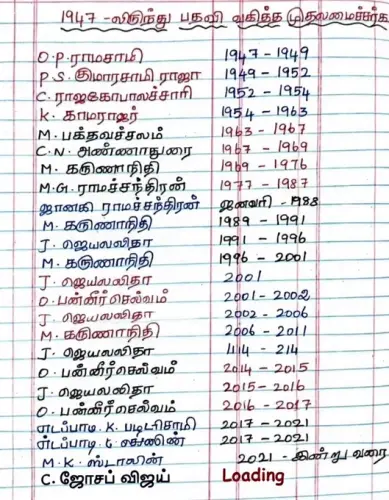 1947 -லிருந்து பதவி வகித்த முதலமைச்சர்க
O.P.ராமசாமி 1947 - 1949
P.S.குமாரசாமி ராஜா 1949 - 1952
C.ராஜகோபாலச்சாரி 1952 - 1954
K.காமராஜர் 1954 - 1963
M.பக்தவச்சலம் 1963 - 1967
C.N.அண்ணாதுரை 1967 - 1969
M.கருணாநிதி 1969 - 1976
M.G.ராமச்சந்திரன் 1977 - 1987
ஜானகி ராமச்சந்திரன் ஜனவரி - 1988
M.கருணாநிதி 1989 - 1991
J.ஜெயலலிதா 1991 - 1996
M.கருணாநிதி 1996 - 2001
J.ஜெயலலிதா 2001
O.பன்னீர்செல்வம் 2001 - 2002
J.ஜெயலலிதா 2002 - 2006
M.கருணாநிதி 2006 - 2011
J.ஜெயலலிதா 1114 - 214
O.பன்னீர்செல்வம் 2014 - 2015
J.ஜெயலலிதா 2015 - 2016
O.பன்னீர்செல்வம் 2016 - 2017
எடப்பாடி.K. 2017 - 2021
எடப்பாடி. 2017 - 2021
M.K.ஸ்டாலின் 2021 - இன்று வரை
C.ஜோசப் விஜய் Loading